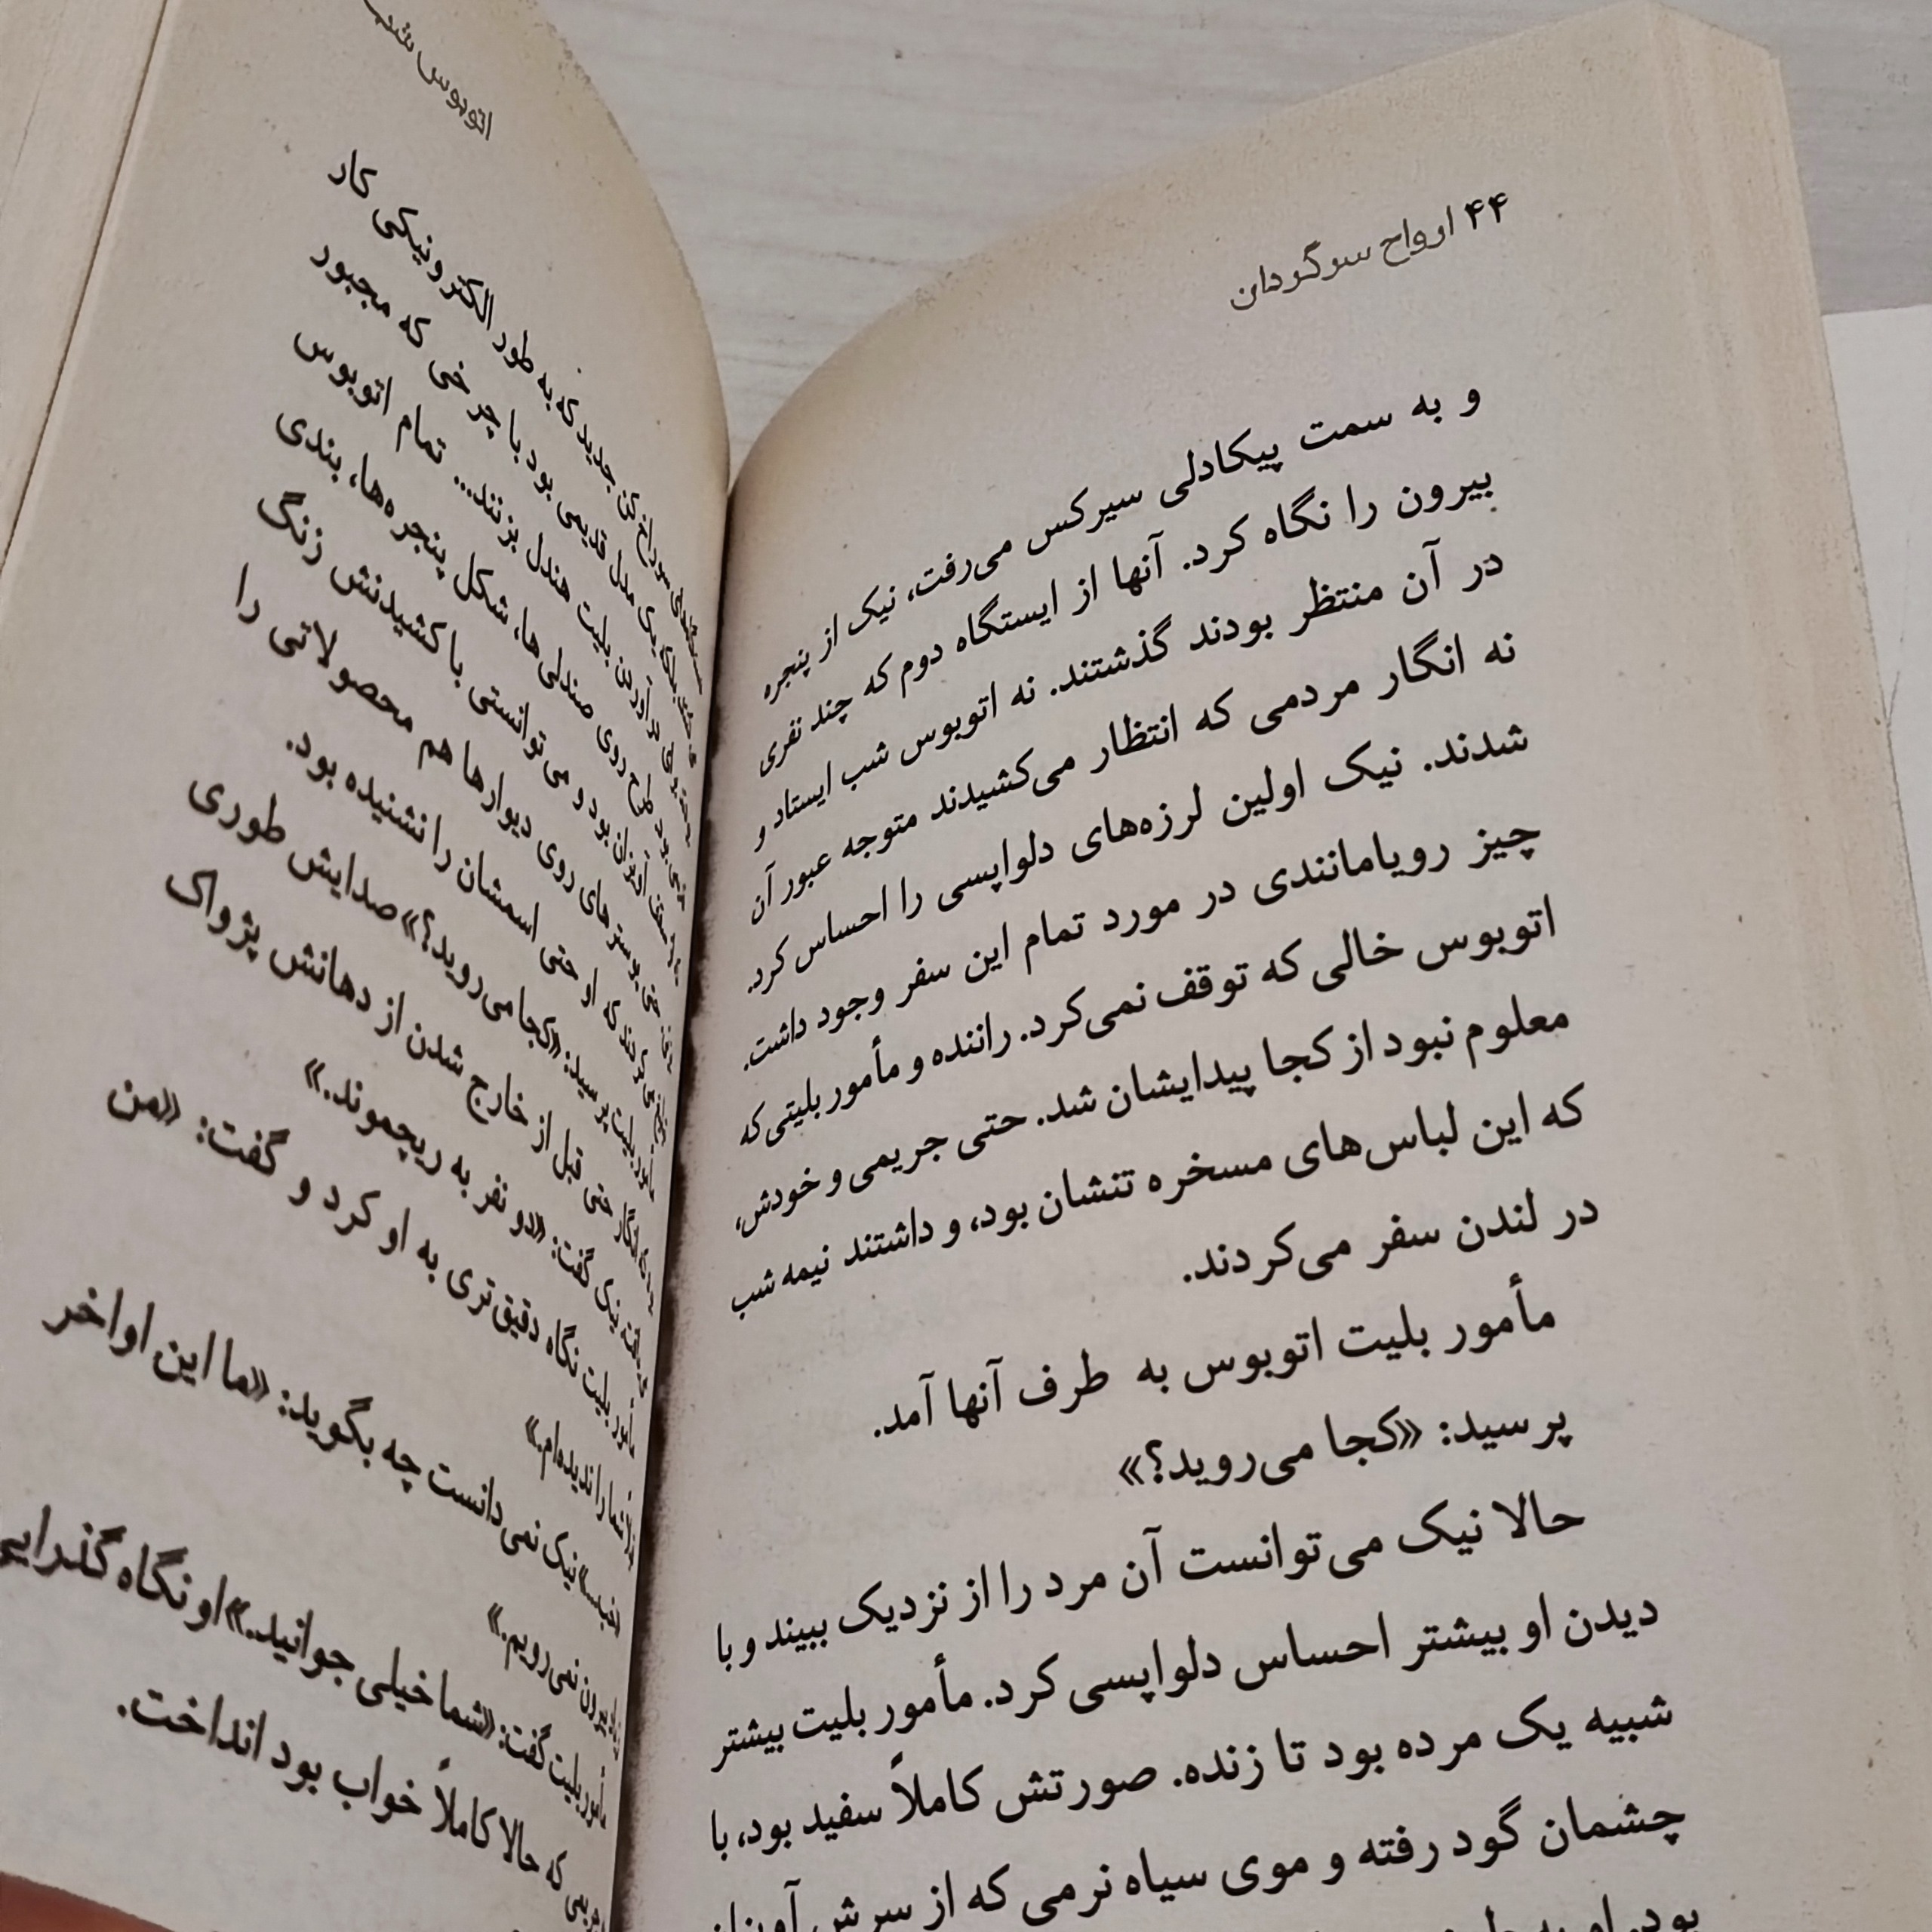 ۴۴ ارواح سرگردان
و به سمت پیکادلی سیرکس می‌رفت، نیک از پنجره
بیرون را نگاه کرد. آنها از ایستگاه دوم که چند نفری
در آن منتظر بودند گذشتند. نه اتوبوس شب ایستاد و
نه انگار مردمی که انتظار می‌کشیدند متوجه عبور آن
شدند. نیک اولین لرزه‌های دلواپسی را احساس کرد.
چیز رویامانندی در مورد تمام این سفر وجود داشت.
اتوبوس خالی که توقف نمی‌کرد. راننده و مأمور بلیتی که
معلوم نبود از کجا پیدایشان شد. حتی جریمی و خودش،
که این لباس‌های مسخره تنشان بود، و داشتند نیمه شب
در لندن سفر می‌کردند.
مأمور بلیت اتوبوس به طرف آنها آمد.
پرسید: «کجا می‌روید؟»
حالا نیک می‌توانست آن مرد را از نزدیک ببیند و با
دیدن او بیشتر احساس دلواپسی کرد. مأمور بلیت بیشتر
شبیه یک مرده بود تا زنده. صورتش کاملاً سفید بود، با
چشمان گود رفته و موی سیاه نرمی که از سرش آویزان
بود. او به
اتوبوس شب
جدید که به طور الکترونیکی کار
مدل قدیمی بود با چرخی که مجبور
بلیت هندل بزنند... تمام اتوبوس
طرح روی صندلی‌ها، شکل پنجره‌ها، بندی
آویزان بود و می‌توانستی با کشیدنش زنگ
پوسترهای روی دیوارها هم محصولاتی را
که او حتی اسمشان را نشنیده بود.
مأمور بلیت پرسید: «کجا می‌روید؟» صدایش طوری
انگار حتی قبل از خارج شدن از دهانش پژواک
نیک گفت: «دو نفر به ریچموند.»
مأمور بلیت نگاه دقیق‌تری به او کرد و گفت: «من
شما را ندیده‌ام.»
نیک نمی‌دانست چه بگوید: «ما این اواخر
بیرون نمی‌رویم.»
مأمور بلیت گفت: «شما خیلی جوانید.» او نگاه گذرایی
که حالا کاملاً خواب بود انداخت.